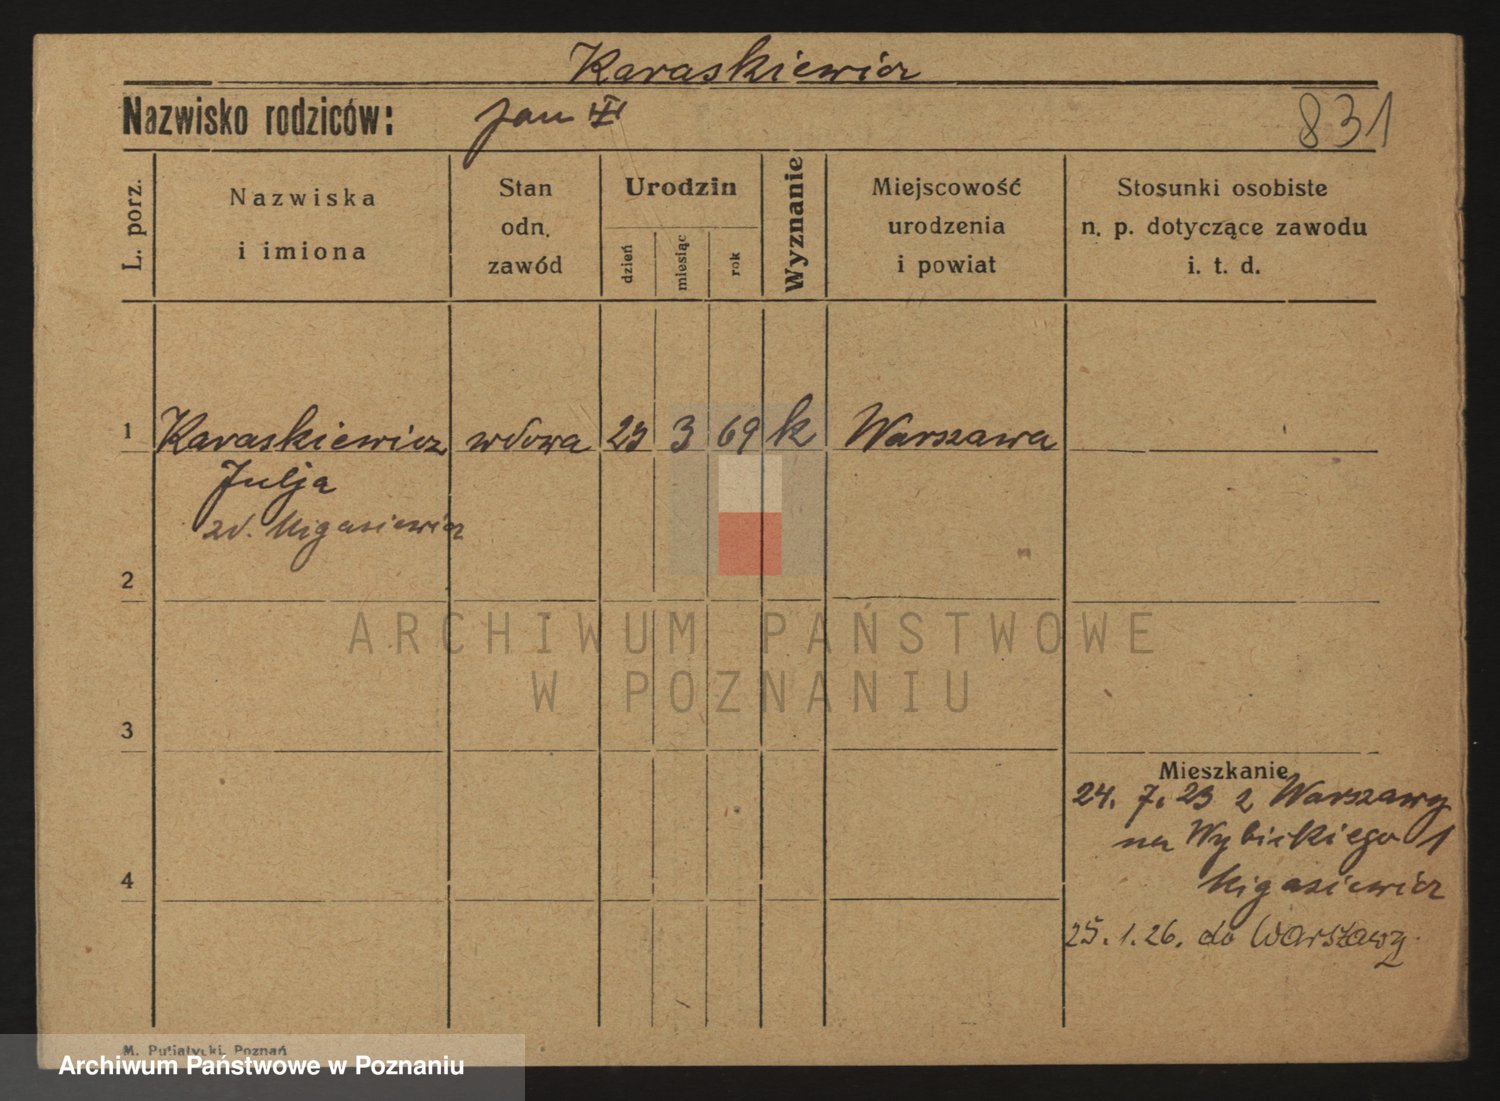 Karaskiewicz
Nazwisko rodziców: Jan
831
L. porz.
Nazwiska
i imiona
Stan
odn.
zawód
Urodzin
dzień
miesiąc
rok
Wyznanie
Miejscowość
urodzenia
i powiat
Stosunki osobiste
n. p. dotyczące zawodu
i. t. d.
1 Karaskiewicz wdowa 23 3 69 k Warszawa
Julja
zd. Migasiewicz
2
ARCHIWUM PAŃSTWOWE
W POZNANIU
3
Mieszkanie
24. 7. 23 z Warszawy
na Wybickiego 1
Migasiewicz
4
25. 1. 26. do Warszawy.
M. Putiatycki, Poznań
Archiwum Państwowe w Poznaniu